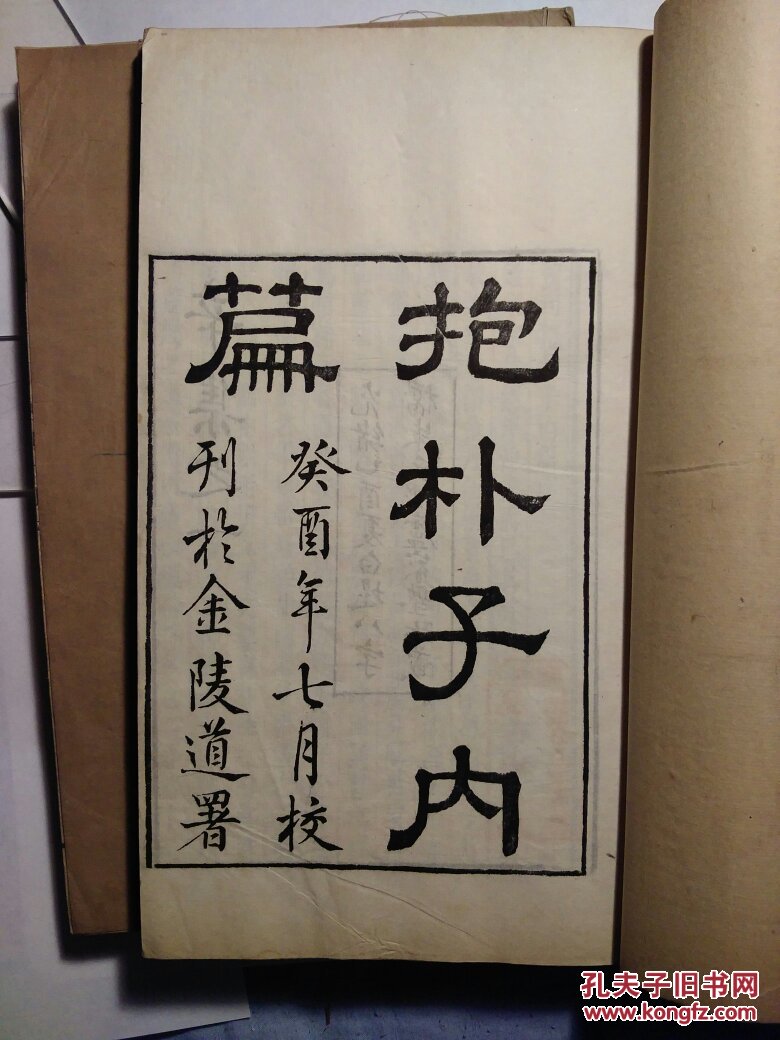 抱朴子内
篇
癸酉年七月校
刊於金陵道署
孔夫子旧书网
www.kongfz.com